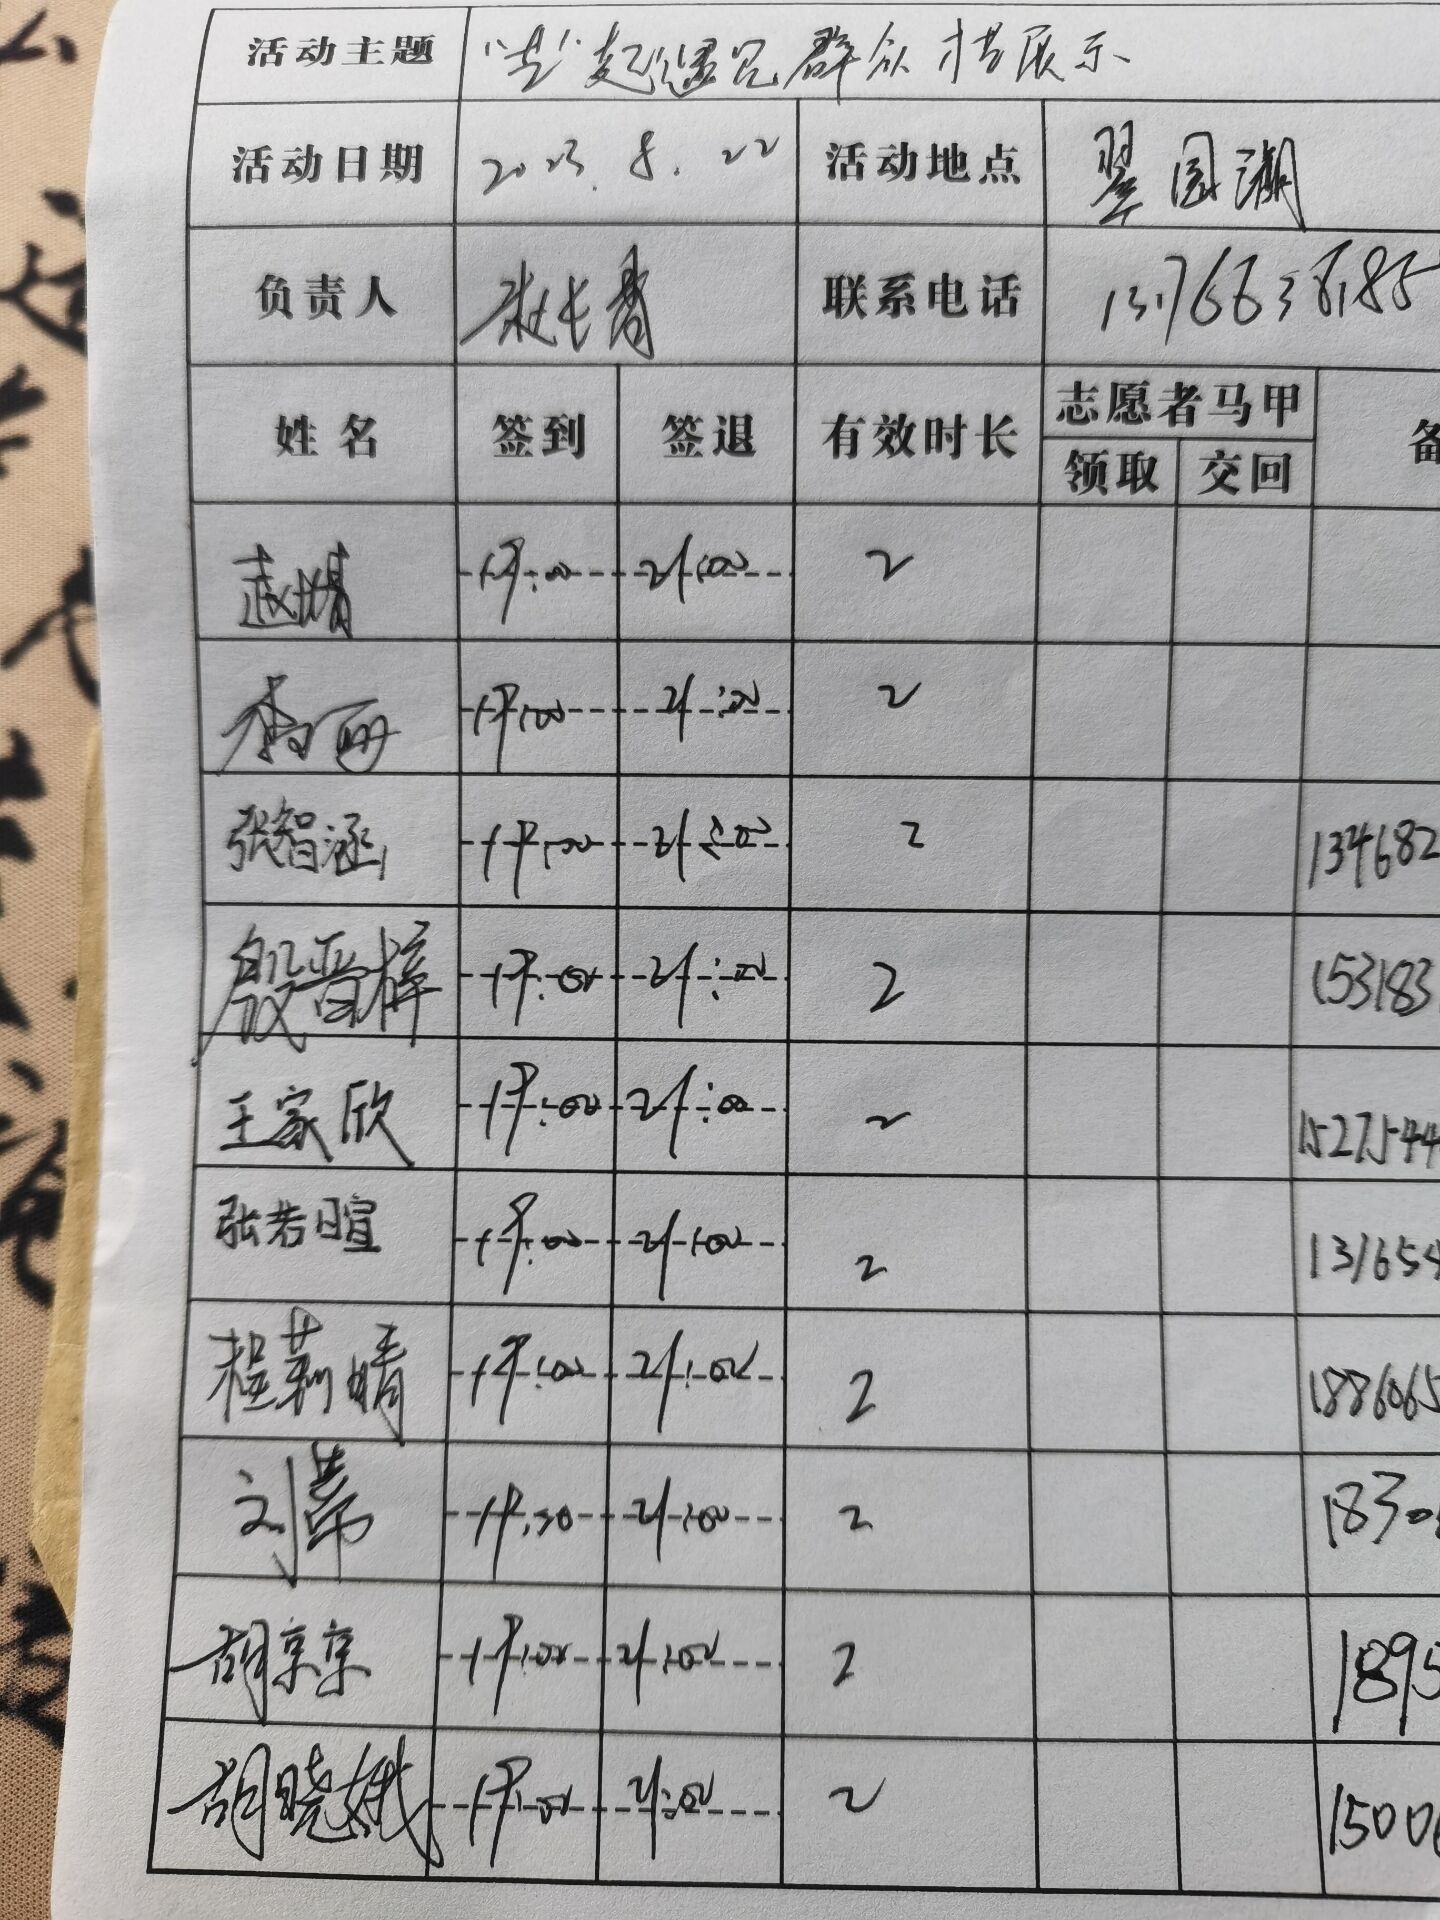 活动主题 遇见群众才艺展示
活动日期 2023.8.22 活动地点 翠园湖
负责人 赵长青 联系电话
姓名 签到 签退 有效时长 志愿者马甲 备
领取 交回
赵婧 19:00 21:00 2
李丽 19:00 21:00 2
张智涵 19:00 21:00 2 134682
殷晋梓 19:00 21:00 2 153183
王家欣 19:00 21:00 2 1527544
张若暄 19:00 21:00 2 131654
程莉婧 19:00 21:00 2 1886065
刘芾 21:00 2 1830
胡京京 19:00 21:00 2 1895
胡晓娥 19:00 21:00 2 1500